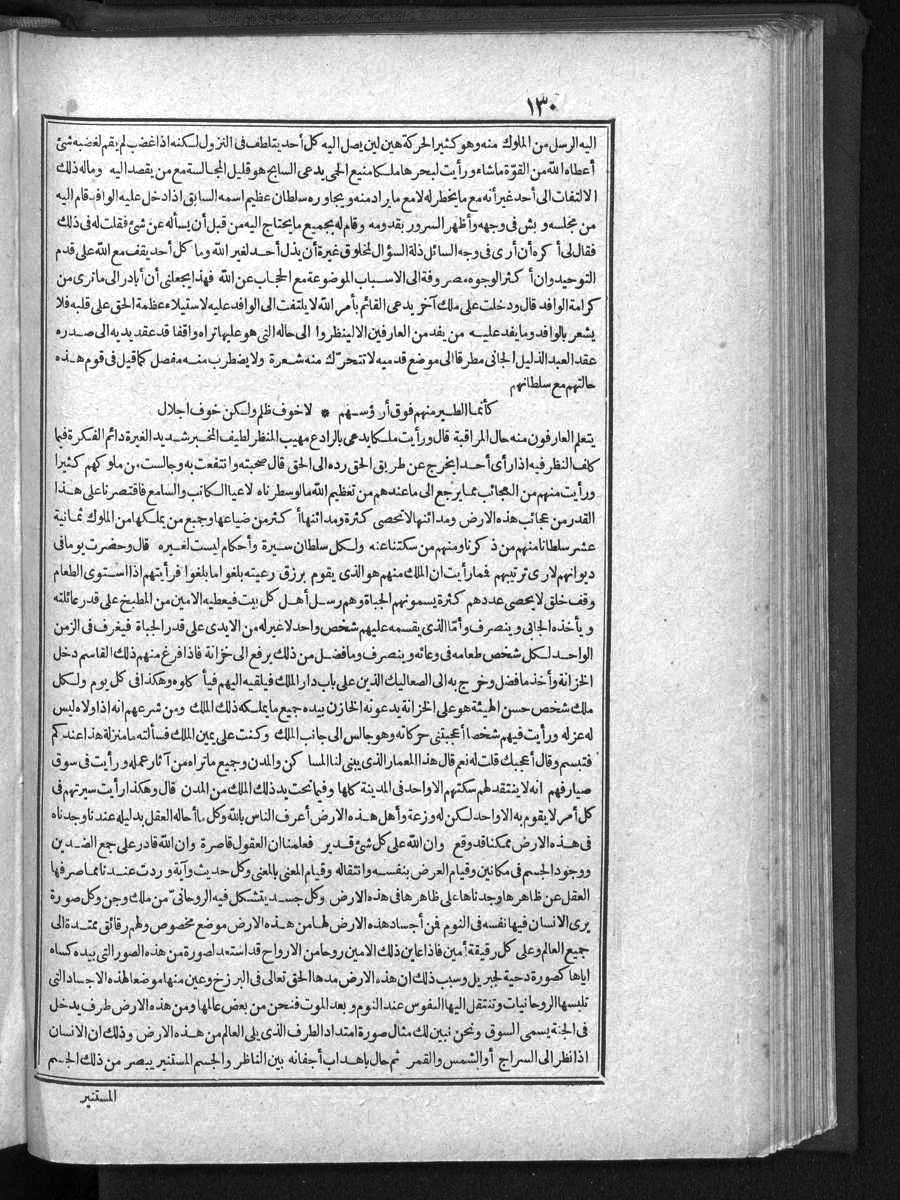 ١٣٠
اليه الرسل من الملوك منه وهو كثير الحركة هين لين يصل اليه كل أحد يتلطف فى النزول لكنه اذا غضب لم يقم لغضبه شئ
أعطاه الله من القوّة ما شاء ورأيت لبحرها ملكا منيع الحمى يدعى السابح هو قليل المجالسة مع من يقصد اليه وماله ذلك
الالتفات الى أحد غير أنه مع ما يخطر له لا مع ما يراد منه ويجاوره سلطان عظيم اسمه السابق اذا دخل عليه الوافد قام اليه
من مجلسه وبش فى وجهه وأظهر السرور بقدومه وقام له بجميع ما يحتاج اليه من قبل أن يسأله عن شئ فقلت له فى ذلك
فقال لى أكره أن أرى فى وجه السائل ذلة السؤال لمخلوق غيرة أن يذل أحد لغير الله وما كل أحد يقف مع الله على قدم
التوحيد وان أكثر الوجوه مصروفة الى الاسباب الموضوعة مع الحجاب عن الله فهذا يجعلنى أن أبادر الى ما ترى من
كرامة الوافد قال ودخلت على ملك آخر يدعى القائم بأمر الله لا يلتفت الى الوافد عليه لاستيلاء عظمة الحق على قلبه فلا
يشعر بالوافد وما يفد عليه من يفد من العارفين الا لينظروا الى حاله التى هو عليها تراه واقفا قد عقد يديه الى صدره
عقد العبد الذليل الجانى مطرقا الى موضع قدميه لا تتحرّك منه شعرة ولا يضطرب منه مفصل كما قيل فى قوم هذه
حالتهم مع سلطانهم
كأنما الطير منهم فوق أرؤسهم * لا خوف ظلم ولكن خوف اجلال
يتعلم العارفون منه حال المراقبة قال ورأيت ملكا يدعى بالرادع مهيب المنظر لطيف المخبر شديد الغيرة دائم الفكرة فيما
كلف النظر فيه اذا رأى أحدا يخرج عن طريق الحق رده الى الحق قال صحبته وانتفعت به وجالست من ملوكهم كثيرا
ورأيت منهم من العجائب مما يرجع الى ما عندهم من تعظيم الله ما لو سطرناه لاعيا الكاتب والسامع فاقتصرنا على هذا
القدر من عجائب هذه الارض ومدائنها لا تحصى كثرة ومدائنها أكثر من ضياعها وجميع من يملكها من الملوك ثمانية
عشر سلطانا منهم من ذكرنا ومنهم من سكتنا عنه ولكل سلطان سيرة وأحكام ليست لغيره قال وحضرت يوما فى
ديوانهم لارى ترتيبهم فمما رأيت ان الملك منهم هو الذى يقوم برزق رعيته بلغوا ما بلغوا فرأيتهم اذا استوى الطعام
وقف خلق لا يحصى عددهم كثرة يسمونهم الجباة وهم رسل أهل كل بيت فيعطيه الامين من المطبخ على قدر عائلته
ويأخذه الجابى وينصرف وأمّا الذى يقسمه عليهم شخص واحد لا غير له من الايدى على قدر الجباة فيغرف فى الزمن
الواحد لكل شخص طعامه فى وعائه وينصرف وما فضل من ذلك يرفع الى خزانة فاذا فرغ منهم ذلك القاسم دخل
الخزانة وأخذ ما فضل وخرج به الى الصعاليك الذين على باب دار الملك فيلقيه اليهم فيأكلوه وهكذا فى كل يوم ولكل
ملك شخص حسن الهيئة هو على الخزانة يدعونه الخازن بيده جميع ما يملكه ذلك الملك ومن شرعهم انه اذا ولاه ليس
له عزله ورأيت فيهم شخصا أعجبتنى حركاته وهو جالس الى جانب الملك وكنت على يمين الملك فسألته ما منزلة هذا عندكم
فتبسم وقال أعجبك قلت له نعم قال هذا المعمار الذى يبنى لنا المساكن والمدن وجميع ما تراه من آثار عمله ورأيت فى سوق
صيارفهم انه لا ينتقد لهم سكتهم الا واحد فى المدينة كلها وفيما تحت يد ذلك الملك من المدن قال وهكذا رأيت سيرتهم فى
كل أمر لا يقوم به الا واحد لكن له وزعة وأهل هذه الارض أعرف الناس بالله وكل ما أحاله العقل بدليله عندنا وجدناه
فى هذه الارض ممكنا قد وقع وان الله على كل شئ قدير فعلمنا ان العقول قاصرة وان الله قادر على جمع الضدين
ووجود الجسم فى مكانين وقيام العرض بنفسه وانتقاله وقيام المعنى بالمعنى وكل حديث وآية وردت عندنا مما صرفها
العقل عن ظاهرها وجدناها على ظاهرها فى هذه الارض وكل جسد يتشكل فيه الروحانىّ من ملك وجن وكل صورة
يرى الانسان فيها نفسه فى النوم فمن أجساد هذه الارض لها من هذه الارض موضع مخصوص ولهم رقائق ممتدة الى
جميع العالم وعلى كل رقيقة أمين فاذا عاين ذلك الامين روحا من الارواح قد استعد لصورة من هذه الصور التى بيده كساه
اياها كصورة دحية لجبريل وسبب ذلك ان هذه الارض مدها الحق تعالى فى البرزخ وعين منها موضعا لهذه الاجساد التى
تلبسها الروحانيات وتنتقل اليها النفوس عند النوم وبعد الموت فنحن من بعض عالمها ومن هذه الارض طرف يدخل
فى الجنة يسمى السوق ونحن نبين لك مثال صورة امتداد الطرف الذى يلى العالم من هذه الارض وذلك ان الانسان
اذا نظر الى السراج أو الشمس والقمر ثم حال باهداب أجفانه بين الناظر والجسم المستنير يبصر من ذلك الجسم
المستنير